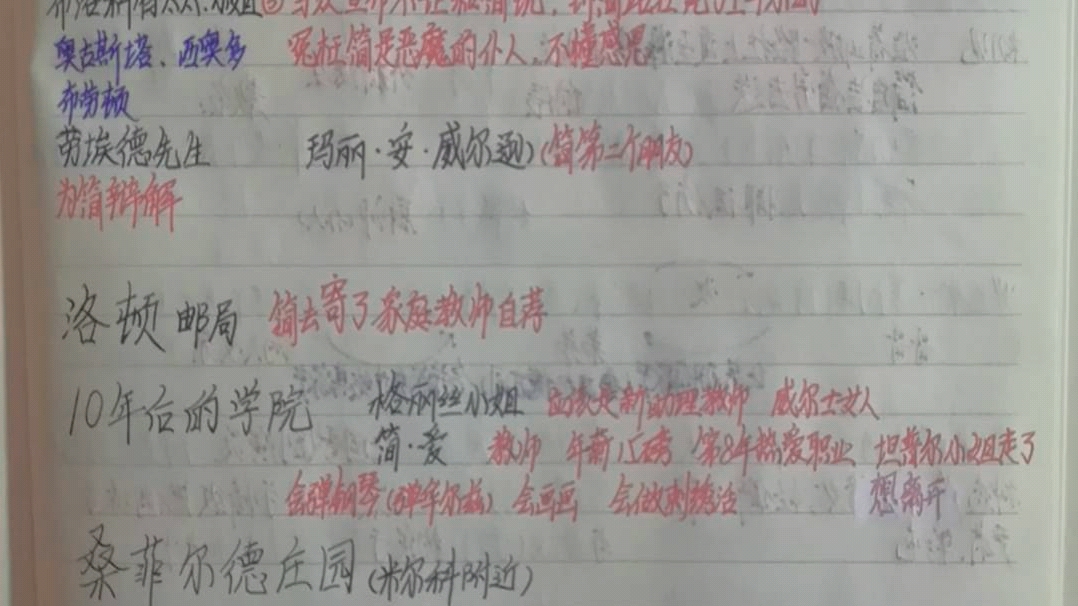 布洛科哈斯太太、小姐 ③当众宣布不让和简玩,
奥古斯塔、西奥多 冤枉简是恶魔的仆人,不懂感恩
布劳顿
劳埃德先生 玛丽·安·威尔逊(简第二个朋友)
为简辩解
洛顿邮局 简去寄了家庭教师自荐
10年后的学院 格丽丝小姐 应该是新助理教师 威尔士女人
简·爱 教师 年薪15磅 第8年热爱职业 坦普尔小姐走了
会弹钢琴(弹华尔兹) 会画画 会做刺绣活 想离开
桑菲尔德庄园(米尔科附近)